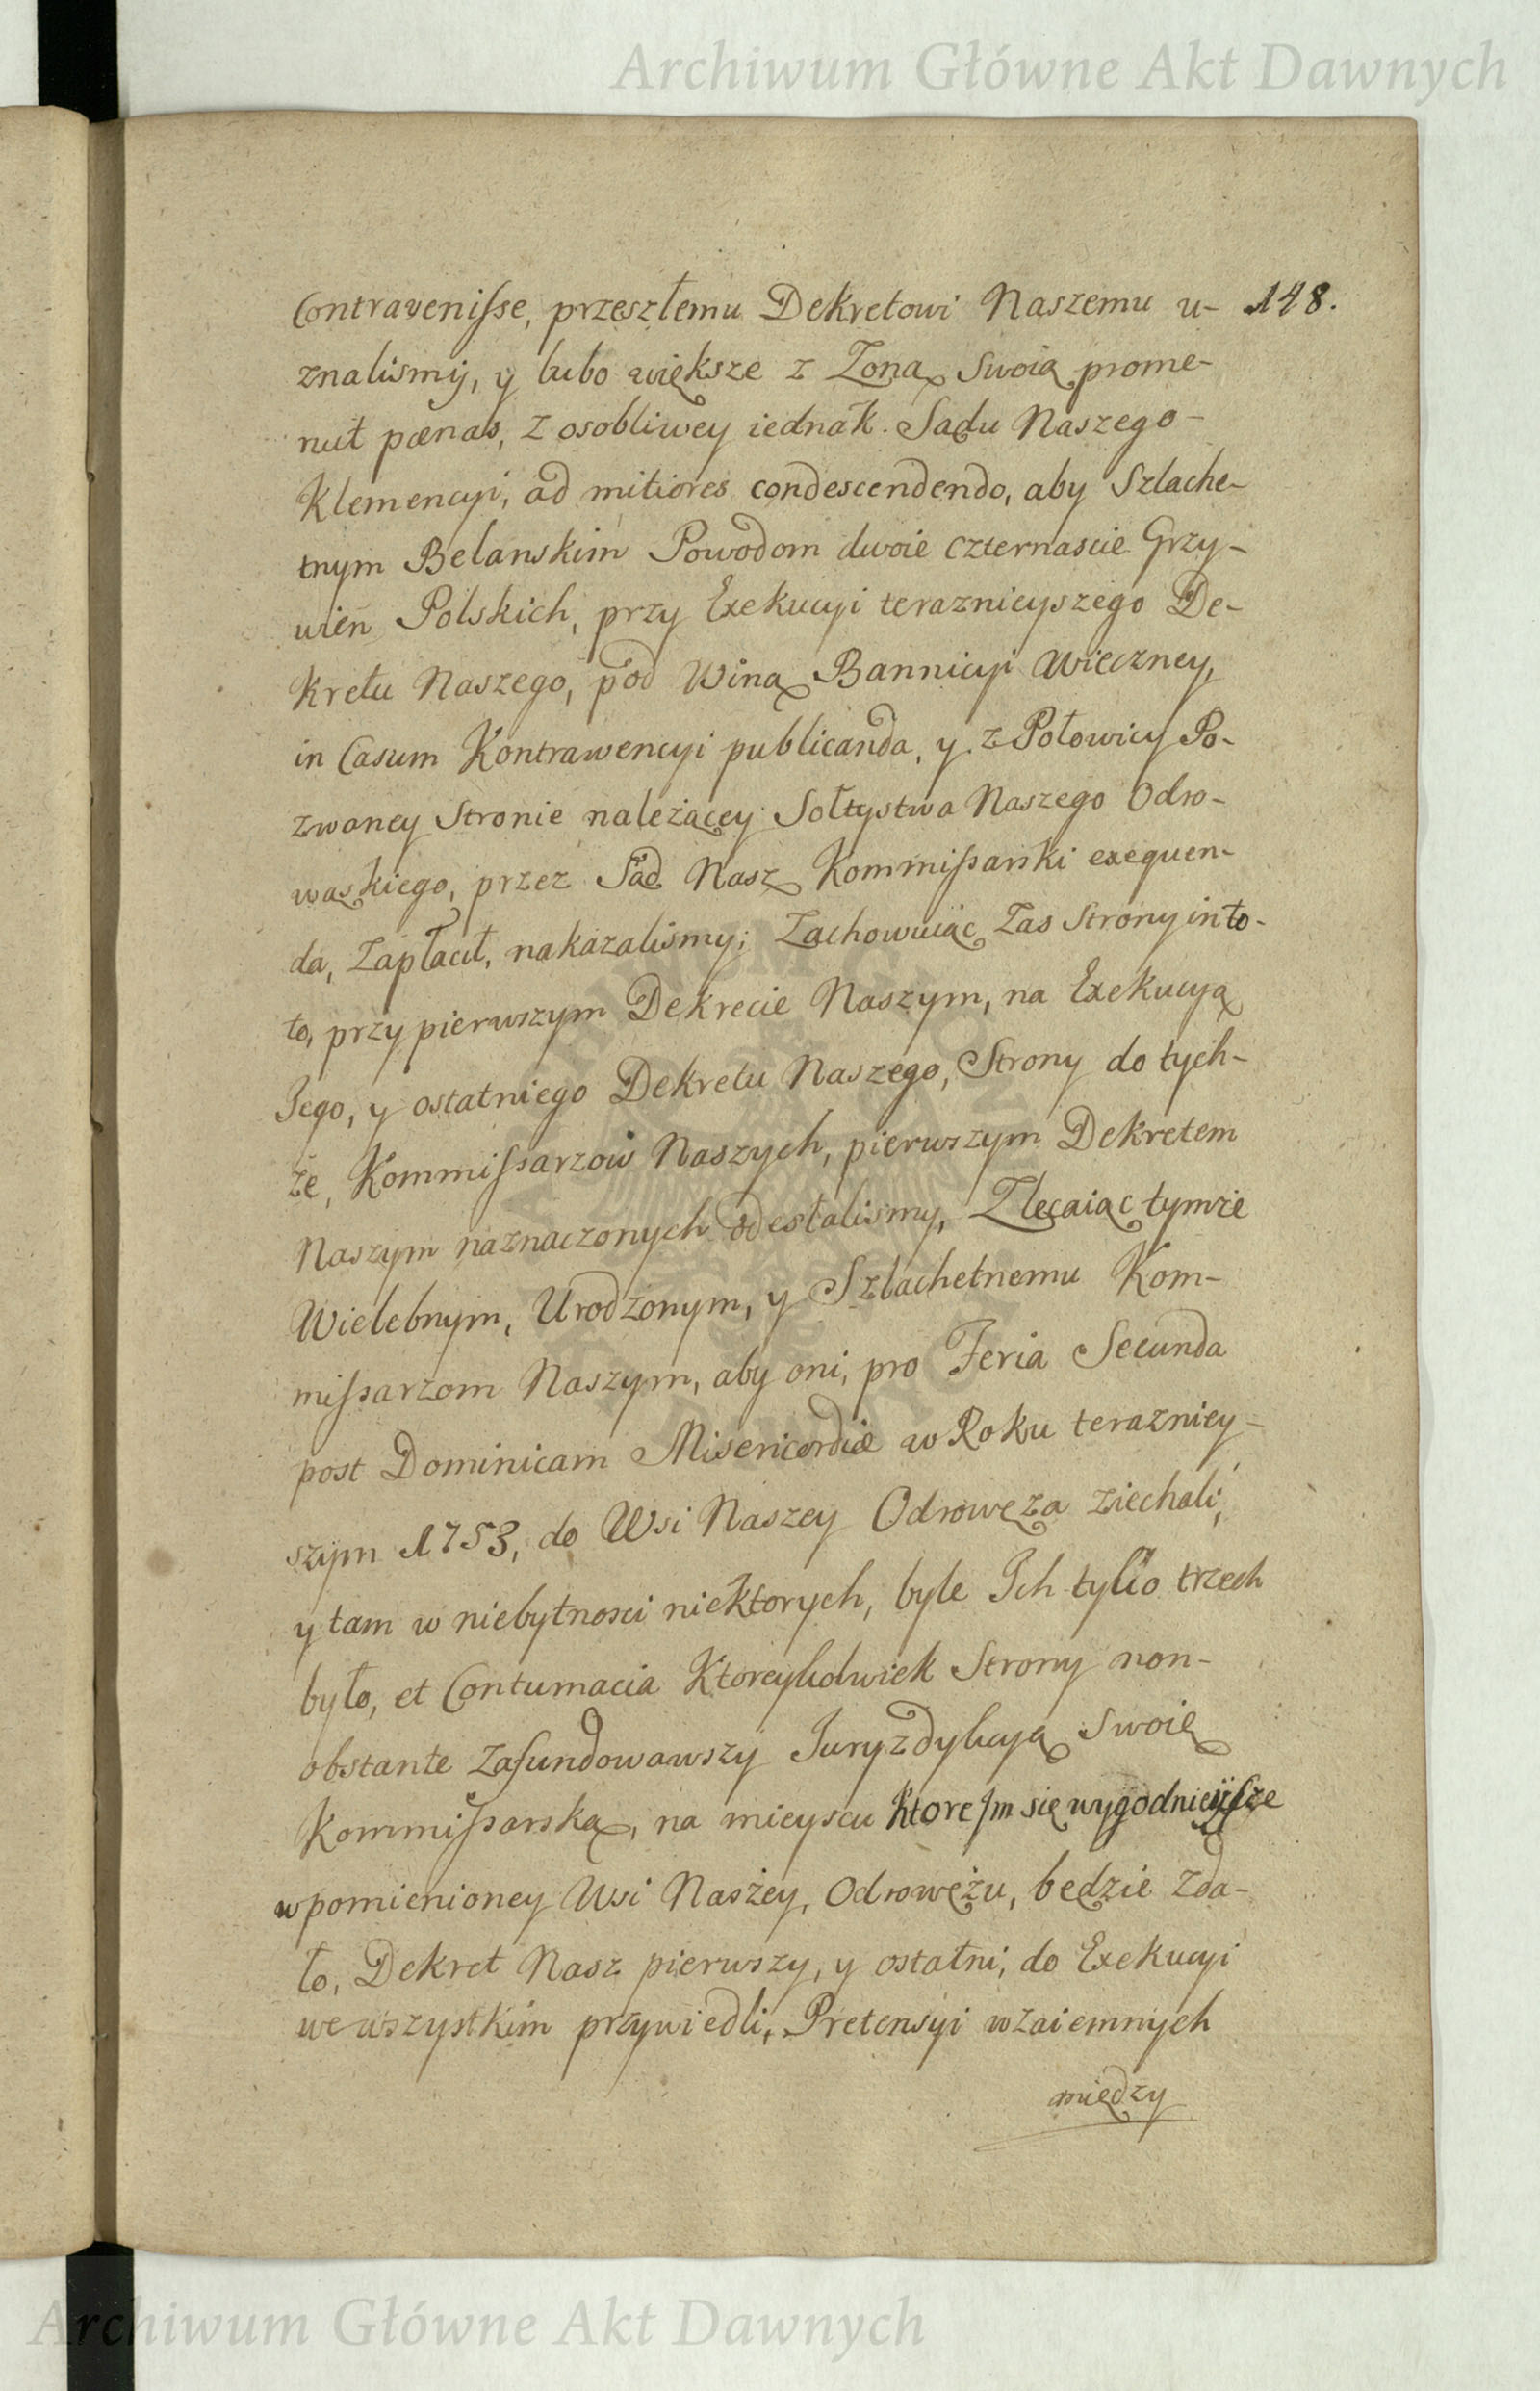 Archiwum Główne Akt Dawnych
Contravenisse, przeszłemu Dekretowi Naszemu u- 148.
znalismy, y lubo większe z Zoną Swoią prome-
ruit pænas, z osobliwey iednak Sądu Naszego
Klemencyi, ad mitiores condescendendo, aby Szlache-
tnym Belanskim Powodom dwoie czternascie Grzy-
wien Polskich, przy Exekucyi teraznieyszego De-
kretu Naszego, pod Winą Bannicyi Wieczney,
in Casum Kontrawencyi publicanda, y z Połowicy Po-
zwaney Stronie należącey Sołtystwa Naszego Odro-
wąskiego, przez Sąd Nasz Kommissarski exequen-
da, Zapłacił, nakazalismy; Zachowuiąc Zas Strony in to-
to, przy pierwszym Dekrecie Naszym, na Exekucyą
Jego, y ostatniego Dekretu Naszego, Strony do tych-
że, Kommissarzow Naszych, pierwszym Dekretem
Naszym naznaczonych odesłalismy, Zlecaiąc tymże
Wielebnym, Urodzonym, y Szlachetnemu Kom-
missarzom Naszym, aby oni, pro Feria Secunda
post Dominicam Misericordiæ w Roku terazniey-
szym 1753, do Wsi Naszey Odrowęza ziechali,
y tam w niebytnosci niektorych, byle Ich tylko trzech
było, et Contumacia Ktoreykolwiek Strony non-
obstante zafundowawszy Juryzdykcyą Swoię
Kommissarską, na mieyscu ktore Jm się wygodnieysze
w pomienioney Wsi Naszey, Odrowężu, będzie zda-
ło, Dekret Nasz pierwszy, y ostatni, do Exekucyi
we wszystkim przywiedli, Pretensyi wzaiemnych
między
Archiwum Główne Akt Dawnych